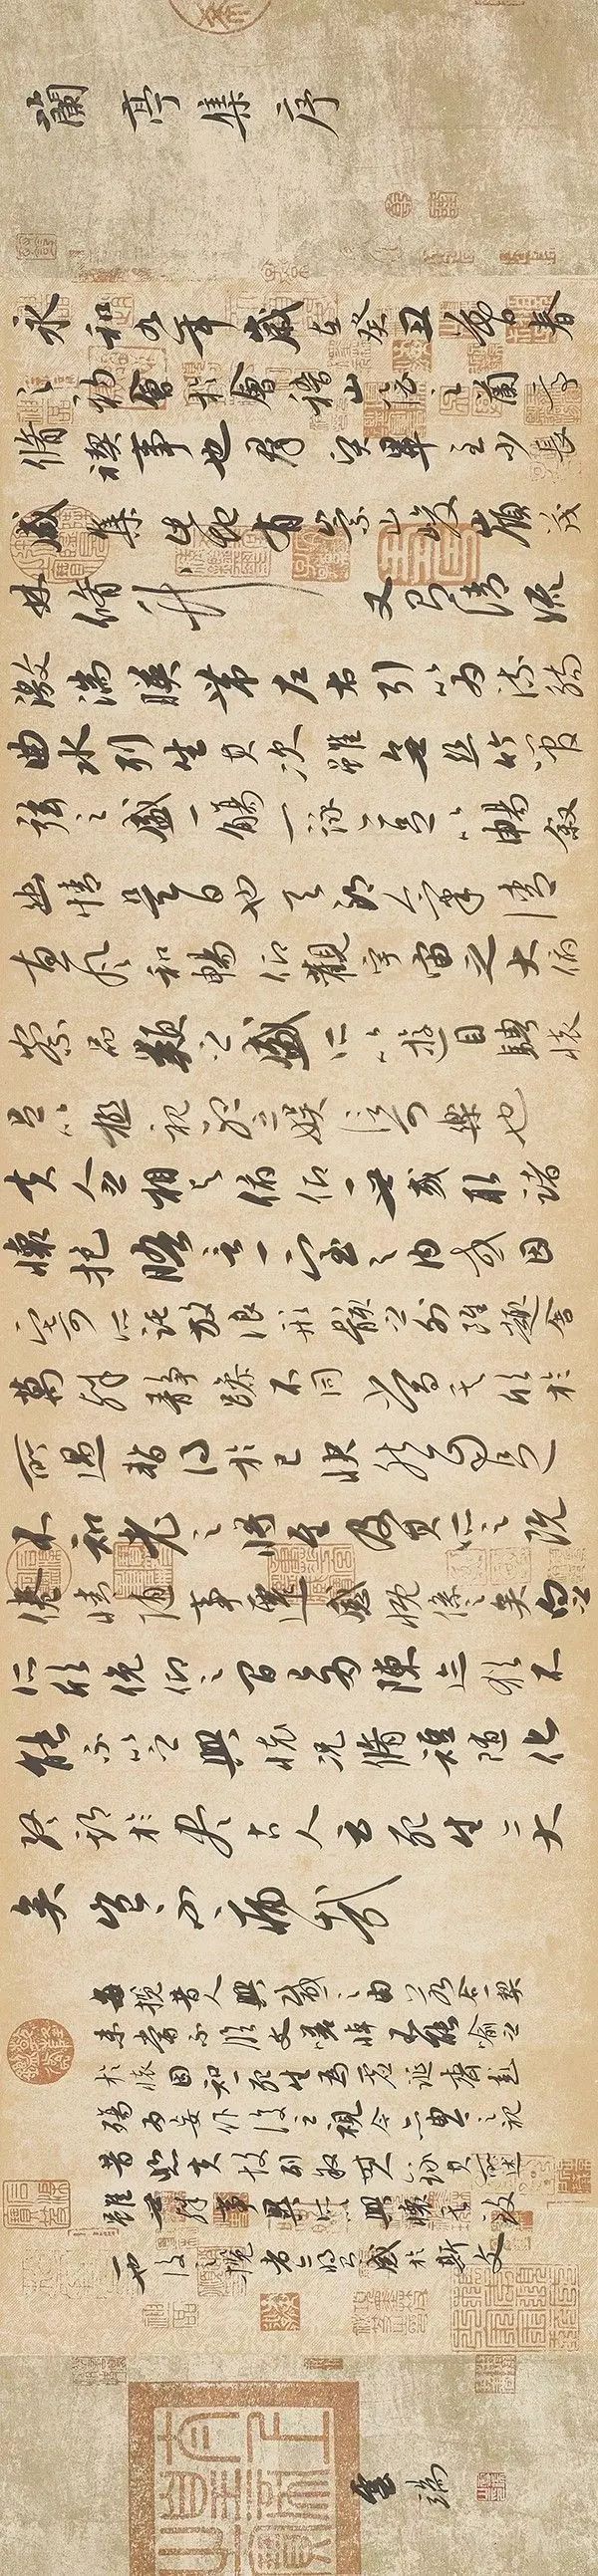 蘭亭集序
永和九年歲在癸丑暮春
之初會於會稽山陰之蘭亭
脩禊事也羣賢畢至少長
咸集此地有崇山峻嶺茂
林脩竹又有清流
激湍暎帶左右引以為流觴
曲水列坐其次雖無絲竹管
弦之盛一觴一詠亦足以暢敘
幽情是日也天朗氣清
惠風和暢仰觀宇宙之大俯
察品類之盛所以遊目騁懷
足以極視聽之娛信可樂也
夫人之相與俯仰一世或取諸
懷抱悟言一室之內或因
寄所託放浪形骸之外雖趣舍
萬殊靜躁不同當其欣於
所遇暫得於己快然自足
不知老之將至及其所之既
倦情隨事遷感慨係之矣向之
所欣俛仰之間以為陳迹猶不
能不以之興懷況脩短隨化
終期於盡古人云死生亦大
矣豈不痛哉
每攬昔人興感之由若合一契
未嘗不臨文嗟悼不能喻之
於懷固知一死生為虛誕齊彭
殤為妄作後之視今亦由今之視
昔悲夫故列敘時人錄其所述
雖世殊事異所以興懷其致
一也後之攬者亦將有感於斯文